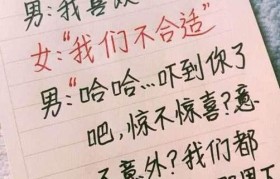 男:我喜欢
女:“我们不合适”
男:“哈哈...吓到你了
吧,惊不惊喜?意
不意外?我们都